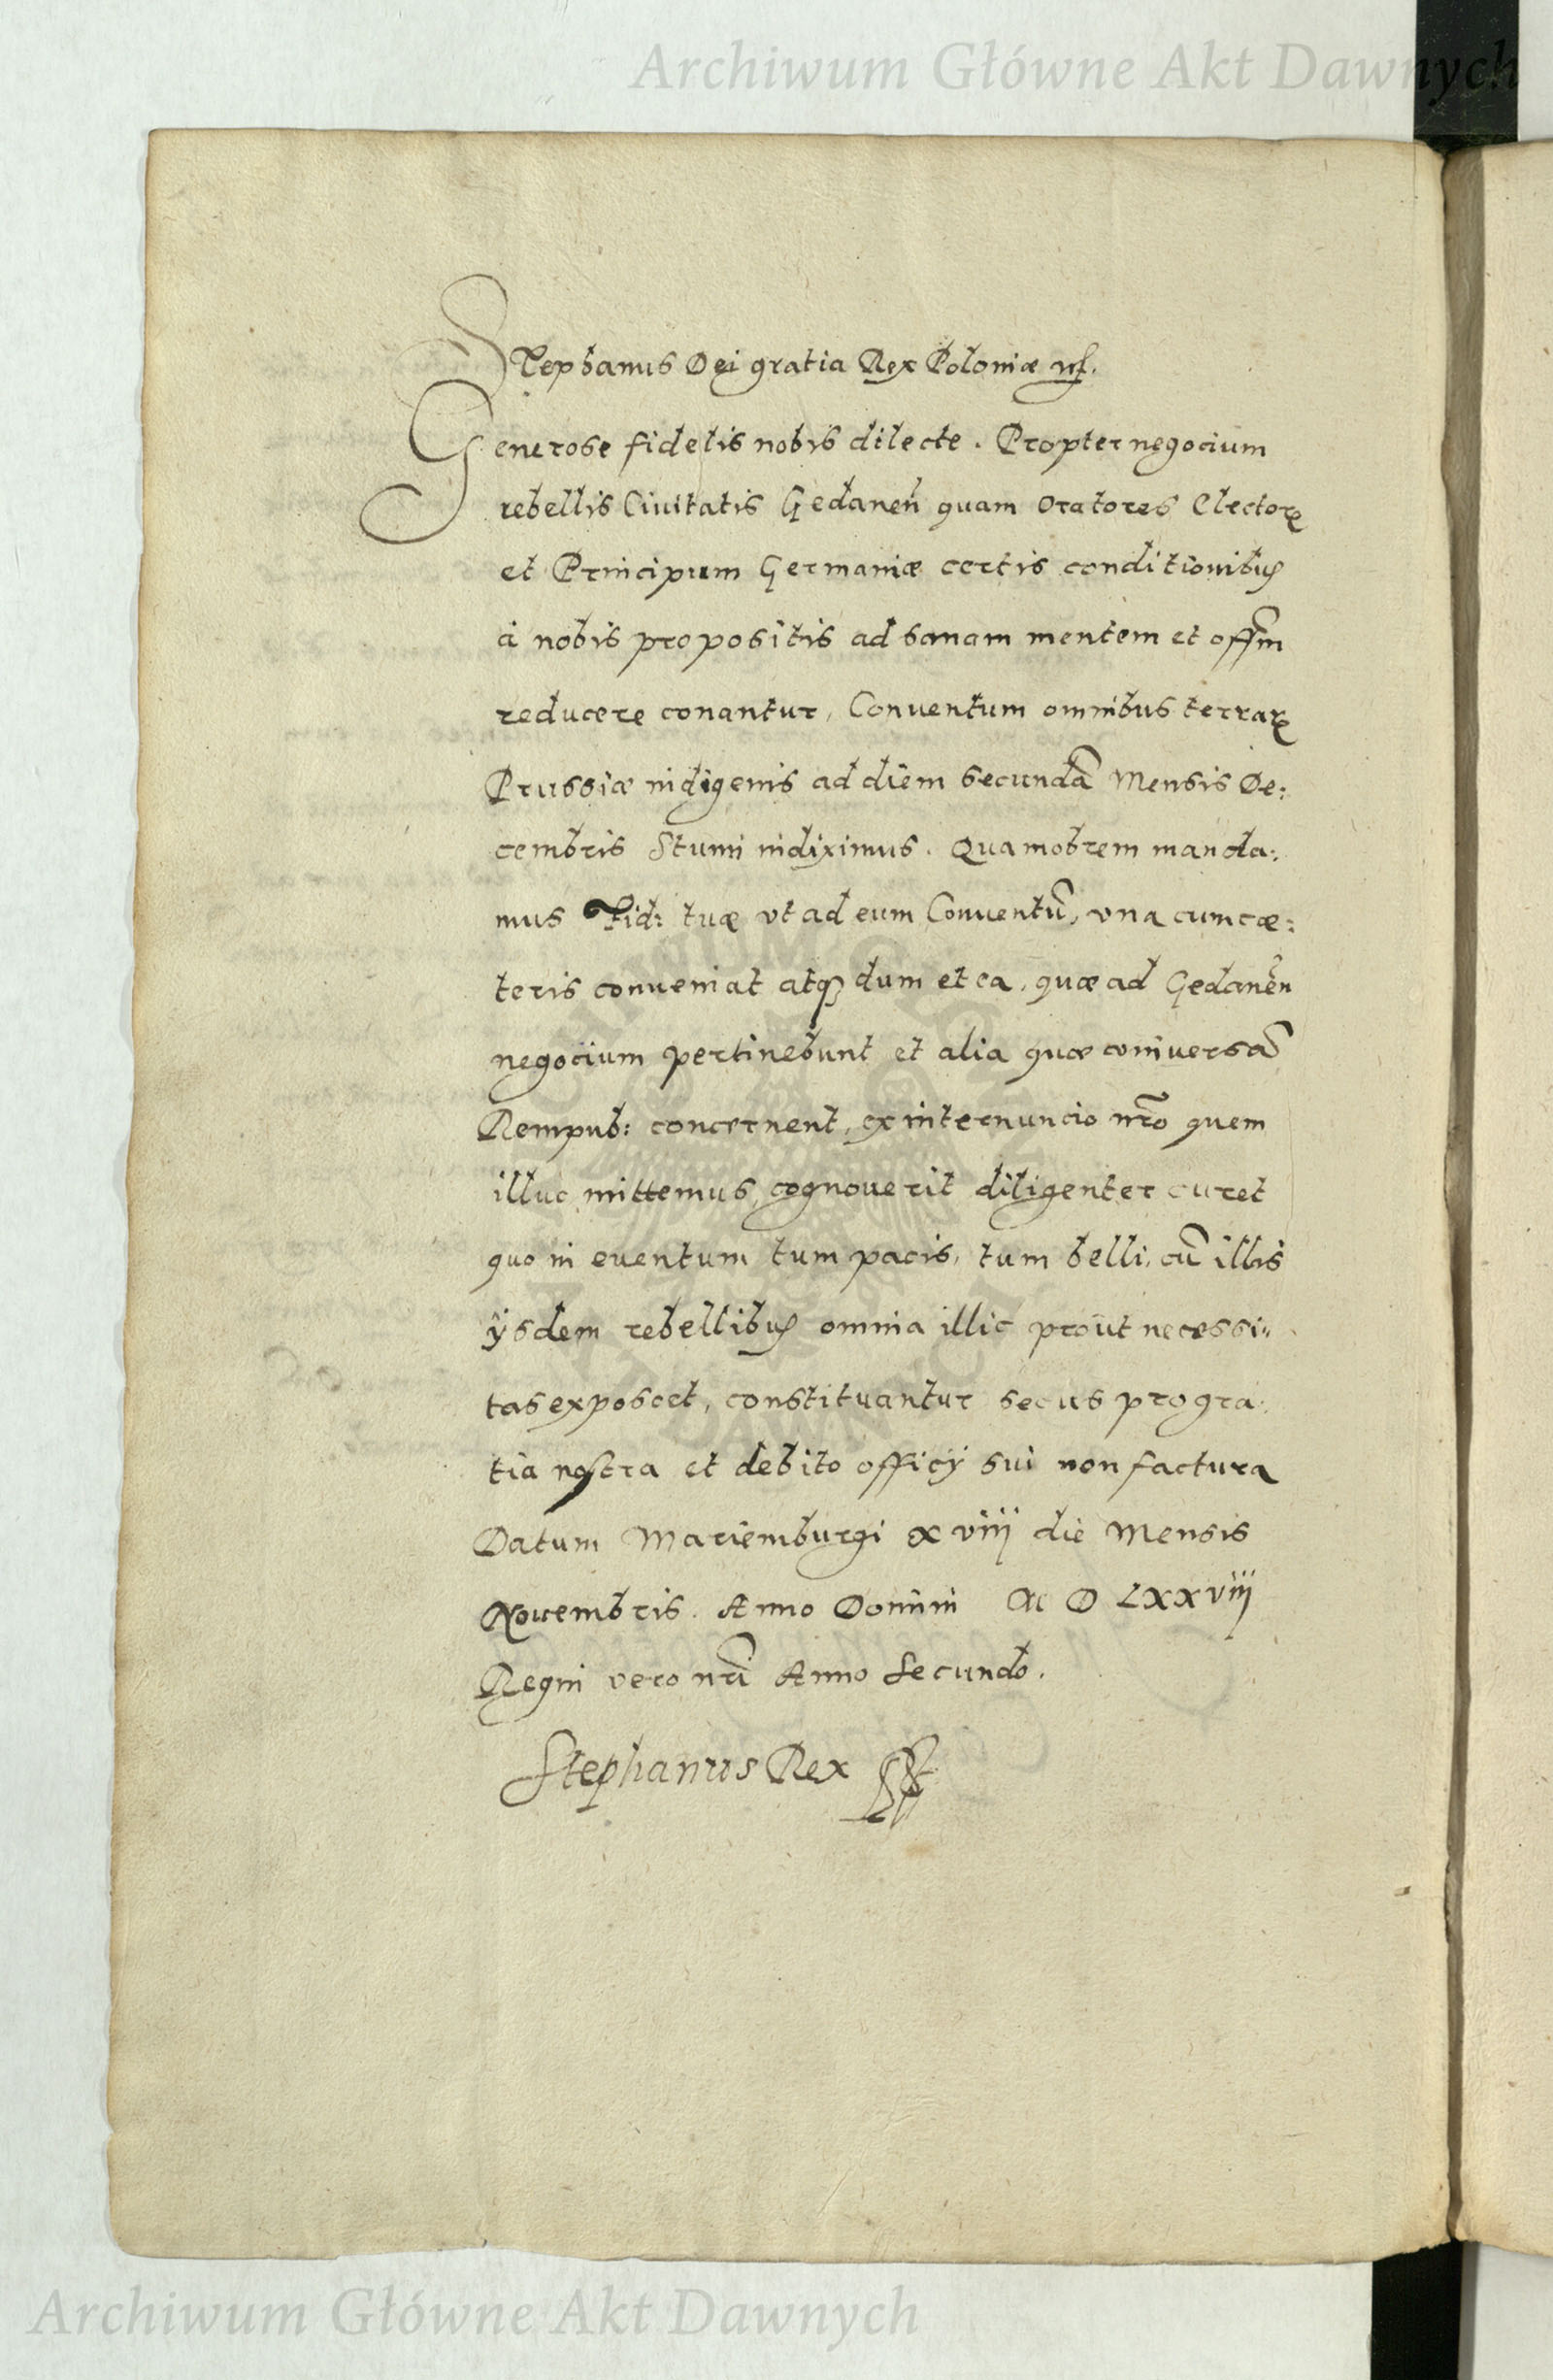 Archiwum Główne Akt Dawnych
Stephanus Dei gratia Rex Poloniæ
Generose fidelis nobis dilecte. Propter negocium
rebellis Ciuitatis Gedaneñ quam Oratores Electorꝝ
et Principum Germaniæ certis conditionibꝰ
à nobis propositis ad sanam mentem et offm̃
reducere conantur, Conuentum omnibus terrarꝝ
Prussiæ indigenis ad diem secundã Mensis De:
cembris Stumi indiximus. Quamobrem manda:
mus Fid: tuæ vt ad eum Conuentũ, vna cum cæ:
teris conueniat atqꝫ dum et ea, quæ ad Gedaneñ
negocium pertinebunt et alia quæ vniuersã
Rempub: concernent, ex internuncio nr̃o quem
illuc mittemus, cognouerit diligenter curet
quo in euentum tum pacis, tum belli, cũ illis
ijsdem rebellibꝰ omnia illic prout necessi:
tas exposcet, constituantur secus pro gra:
tia nostra et debito officij sui non factura
Datum Mariemburgi xviij die Mensis
Nouembris. Anno Domini M D LXXviij
Regni vero nr̃i Anno Secundo.
Stephanus Rex
Archiwum Główne Akt Dawnych